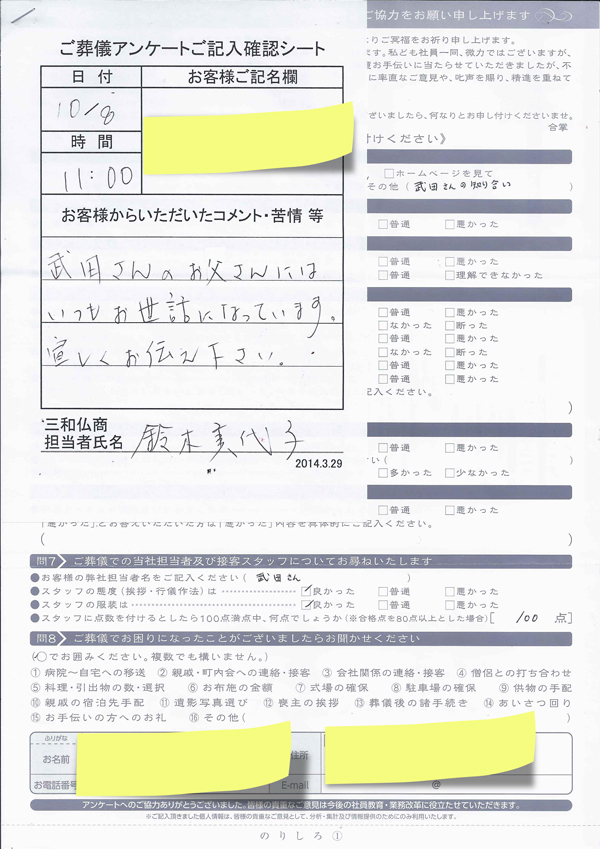 ご葬儀アンケートご記入確認シート
日 付
お客様ご記名欄
10/8
時 間
11:00
お客様からいただいたコメント・苦情 等
武田さんのお父さんには
いつもお世話になっています。
宜しくお伝え下さい。
三和仏商
担当者氏名 鈴木美代子
2014.3.29
ご協力をお願い申し上げます
ご冥福をお祈り申し上げます。
ます。私ども社員一同、微力ではございますが、
お手伝いに当たらせていただきましたが、不
に率直なご意見や、叱声を賜り、精進を重ねて
ございましたら、何なりとお申し付けくださいませ。
合掌
付けください》
□ホームページを見て
その他（武田さんの知り合い
□普通 □悪かった
□普通 □悪かった
□普通 □理解できなかった
□普通 □悪かった
□なかった □断った
□普通 □悪かった
□なかった □断った
□普通 □悪かった
□普通 □悪かった
記入ください。
)
□普通 □悪かった
い( )
□多かった □少なかった
□普通 □悪かった
「悪かった」とお答えいただいた方は「悪かった」内容を具体的にご記入ください。
( )
問7 ご葬儀での当社担当者及び接客スタッフについてお尋ねいたします
●お客様の弊社担当者名をご記入ください（ 武田さん ）
●スタッフの態度（挨拶・行儀作法）は ☑良かった □普通 □悪かった
●スタッフの服装は ☑良かった □普通 □悪かった
●スタッフに点数を付けるとしたら100点満点中、何点でしょうか（※合格点を80点以上とした場合）[ 100 点]
問8 ご葬儀でお困りになったことがございましたらお聞かせください
(○でお囲みください。複数でも構いません。)
①病院～自宅への移送 ②親戚・町内会への連絡・接客 ③会社関係の連絡・接客 ④僧侶との打ち合わせ
⑤料理・引出物の数・選択 ⑥お布施の金額 ⑦式場の確保 ⑧駐車場の確保 ⑨供物の手配
⑩親戚の宿泊先手配 ⑪遺影写真選び ⑫喪主の挨拶 ⑬葬儀後の諸手続き ⑭あいさつ回り
⑮お手伝いの方へのお礼 ⑯その他( )
ふりがな
お名前
住所
お電話番号
E-mail @
アンケートへのご協力ありがとうございました。皆様の貴重なご意見は今後の社員教育・業務改革に役立たせていただきます。
※ご記入頂きました個人情報は、皆様の貴重なご意見として、分析・集計及び情報提供のためにのみ利用いたします。
のりしろ①